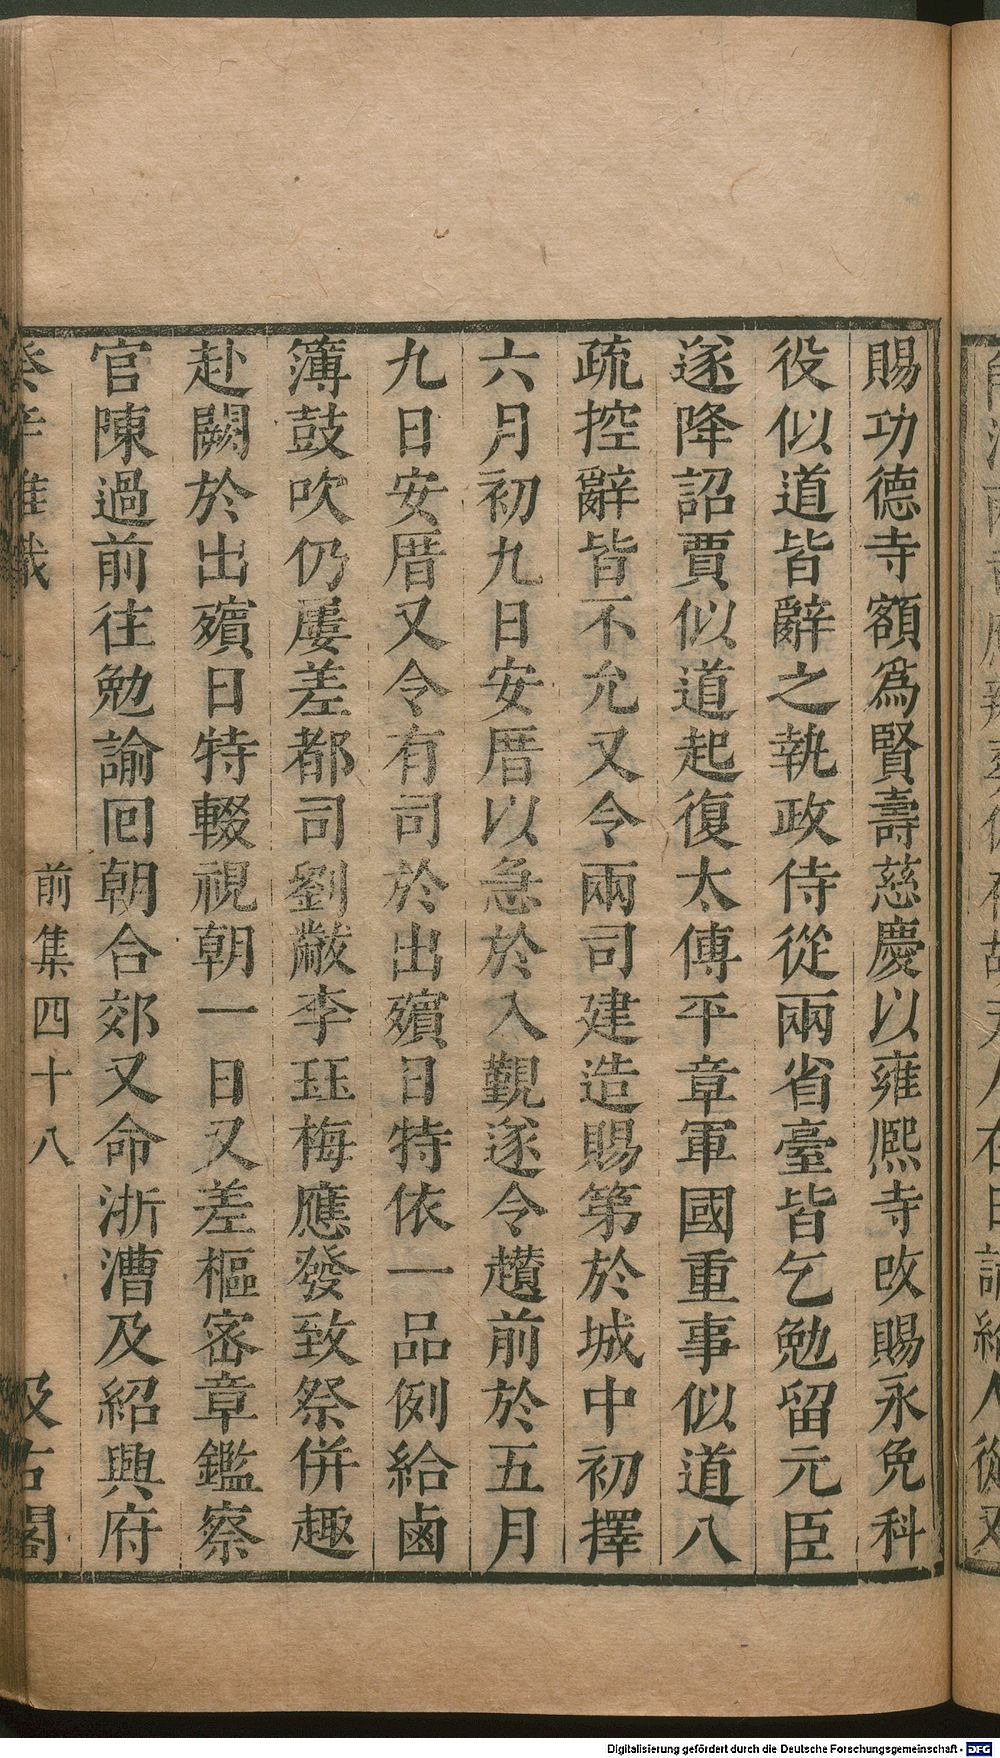 賜功德寺額爲賢壽慈慶以雍熈寺改賜永免科
役似道皆辭之執政侍從兩省臺皆乞勉留元臣
遂降詔賈似道起復太傅平章軍國重事似道八
疏控辭皆不允又令兩司建造賜第於城中初擇
六月初九日安厝以急於入覲遂令趲前於五月
九日安厝又令有司於出殯日特依一品例給鹵
簿鼓吹仍屢差都司劉黻李珏梅應發致祭併趣
赴闕於出殯日特輟視朝一日又差樞密章鑑察
官陳過前往勉諭囘朝合郊又命浙漕及紹興府
癸辛雜識 前集四十八 汲古閣
Digitalisierung gefördert durch die Deutsche Forschungsgemeinschaft - DFG